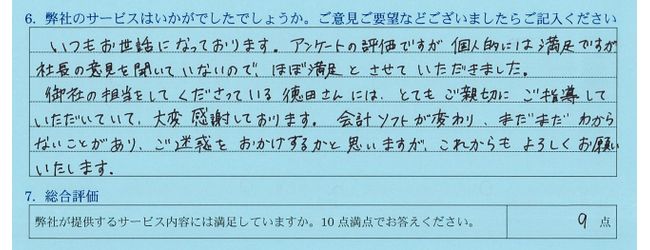 6. 弊社のサービスはいかがでしたでしょうか。ご意見ご要望などございましたらご記入ください
いつもお世話になっております。アンケートの評価ですが 個人的には満足ですが
社長の意見を聞いていないので、ほぼ満足とさせていただきました。
御社の担当をしてくださっている徳田さんには、とてもご親切にご指導して
いただいていて、大変感謝しております。会計ソフトが変わり、まだまだわから
ないことがあり、ご迷惑をおかけするかと思いますが、これからもよろしくお願い
いたします。
7. 総合評価
弊社が提供するサービス内容には満足していますか。10点満点でお答えください。 9 点